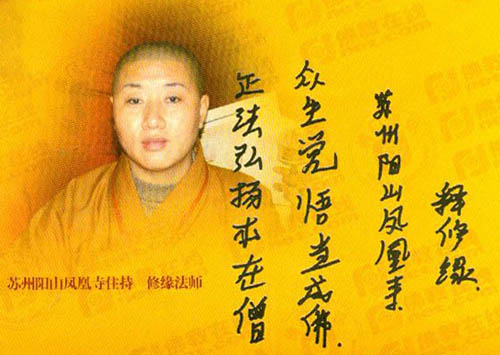 正法弘扬本在僧
众生觉悟当成佛.
苏州阳山凤凰寺
释修缘.
苏州阳山凤凰寺住持 修缘法师